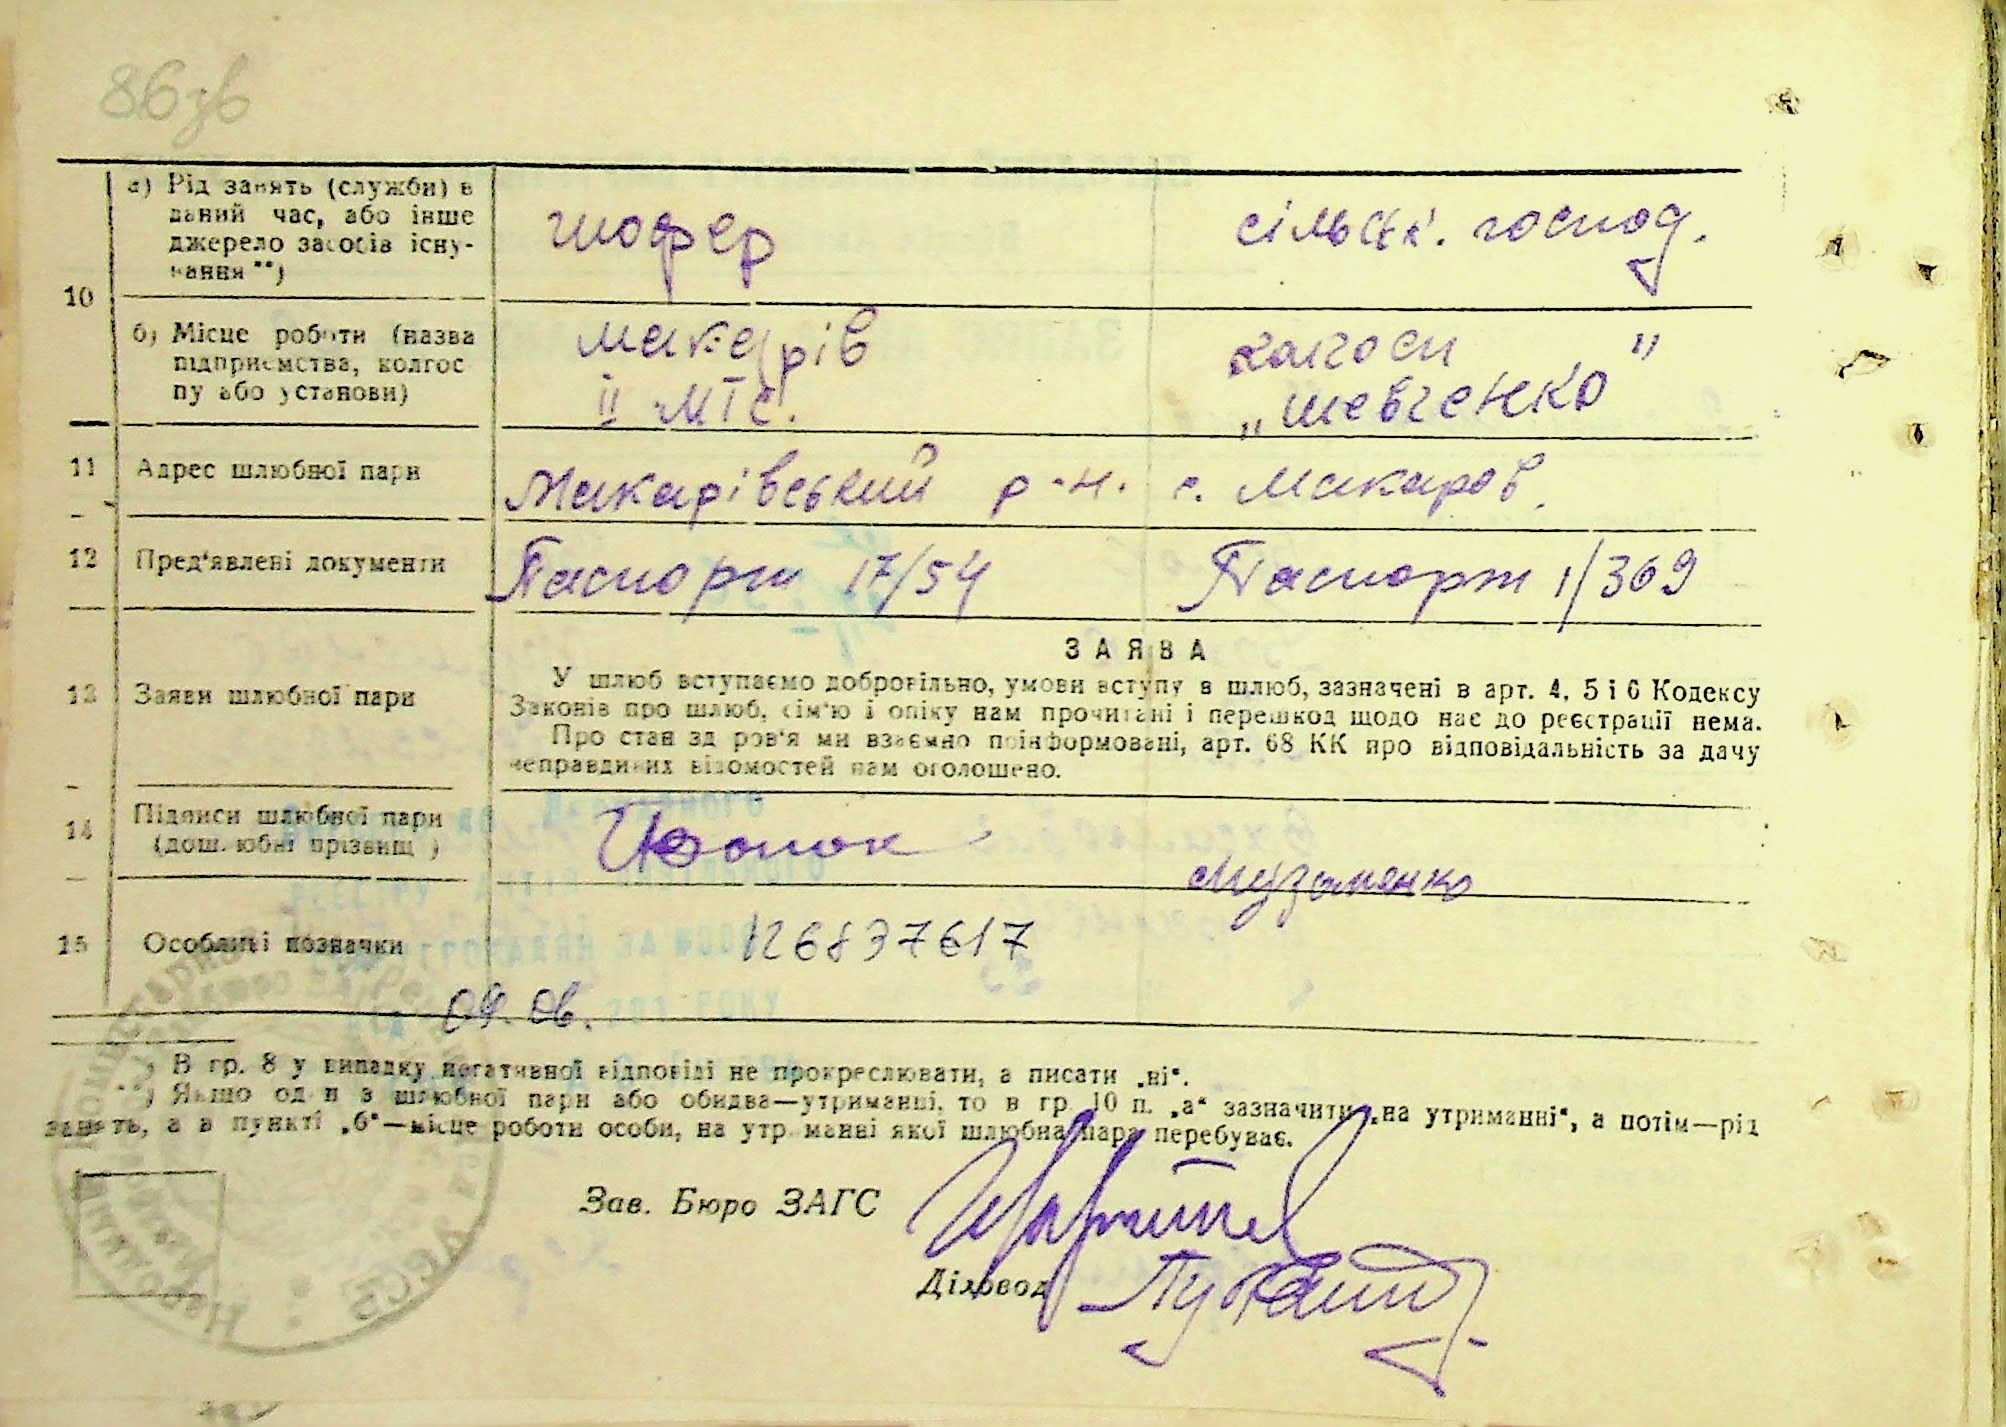 86зв
10
а) Рід занять (служби) в
даний час, або інше
джерело засобів існу-
вання **)
шофер
сільськ. господ.
б) Місце роботи (назва
підприємства, колгос
пу або установи)
Макарів
II МТС.
колгосп "
„Шевченко
11 Адрес шлюбної пари
Макарівський р-н. с. Макаров.
12 Пред'явлені документи
Паспорт 17/54
Паспорт 1/369
13 Заяви шлюбної пари
ЗАЯВА
У шлюб вступаємо добровільно, умови вступу в шлюб, зазначені в арт. 4, 5 і 6 Кодексу
Законів про шлюб, сім'ю і опіку нам прочитані і перешкод щодо нас до реєстрації нема.
Про стан здоров'я ми взаємно поінформовані, арт. 68 КК про відповідальність за дачу
неправдивих відомостей нам оголошено.
14 Підписи шлюбної пари
(дошлюбні прізвищ )
Музыменко
15 Особливі позначки
126837617
09. 06.
*) В гр. 8 у випадку негативної відповіді не прокреслювати, а писати „ні“.
**) Якщо один з шлюбної пари або обидва—утриманці, то в гр. 10 п. „а“ зазначити „на утриманні“, а потім—рід
занять, а в пункті „б“—місце роботи особи, на утриманні якої шлюбна пара перебуває.
Зав. Бюро ЗАГС
Діловод